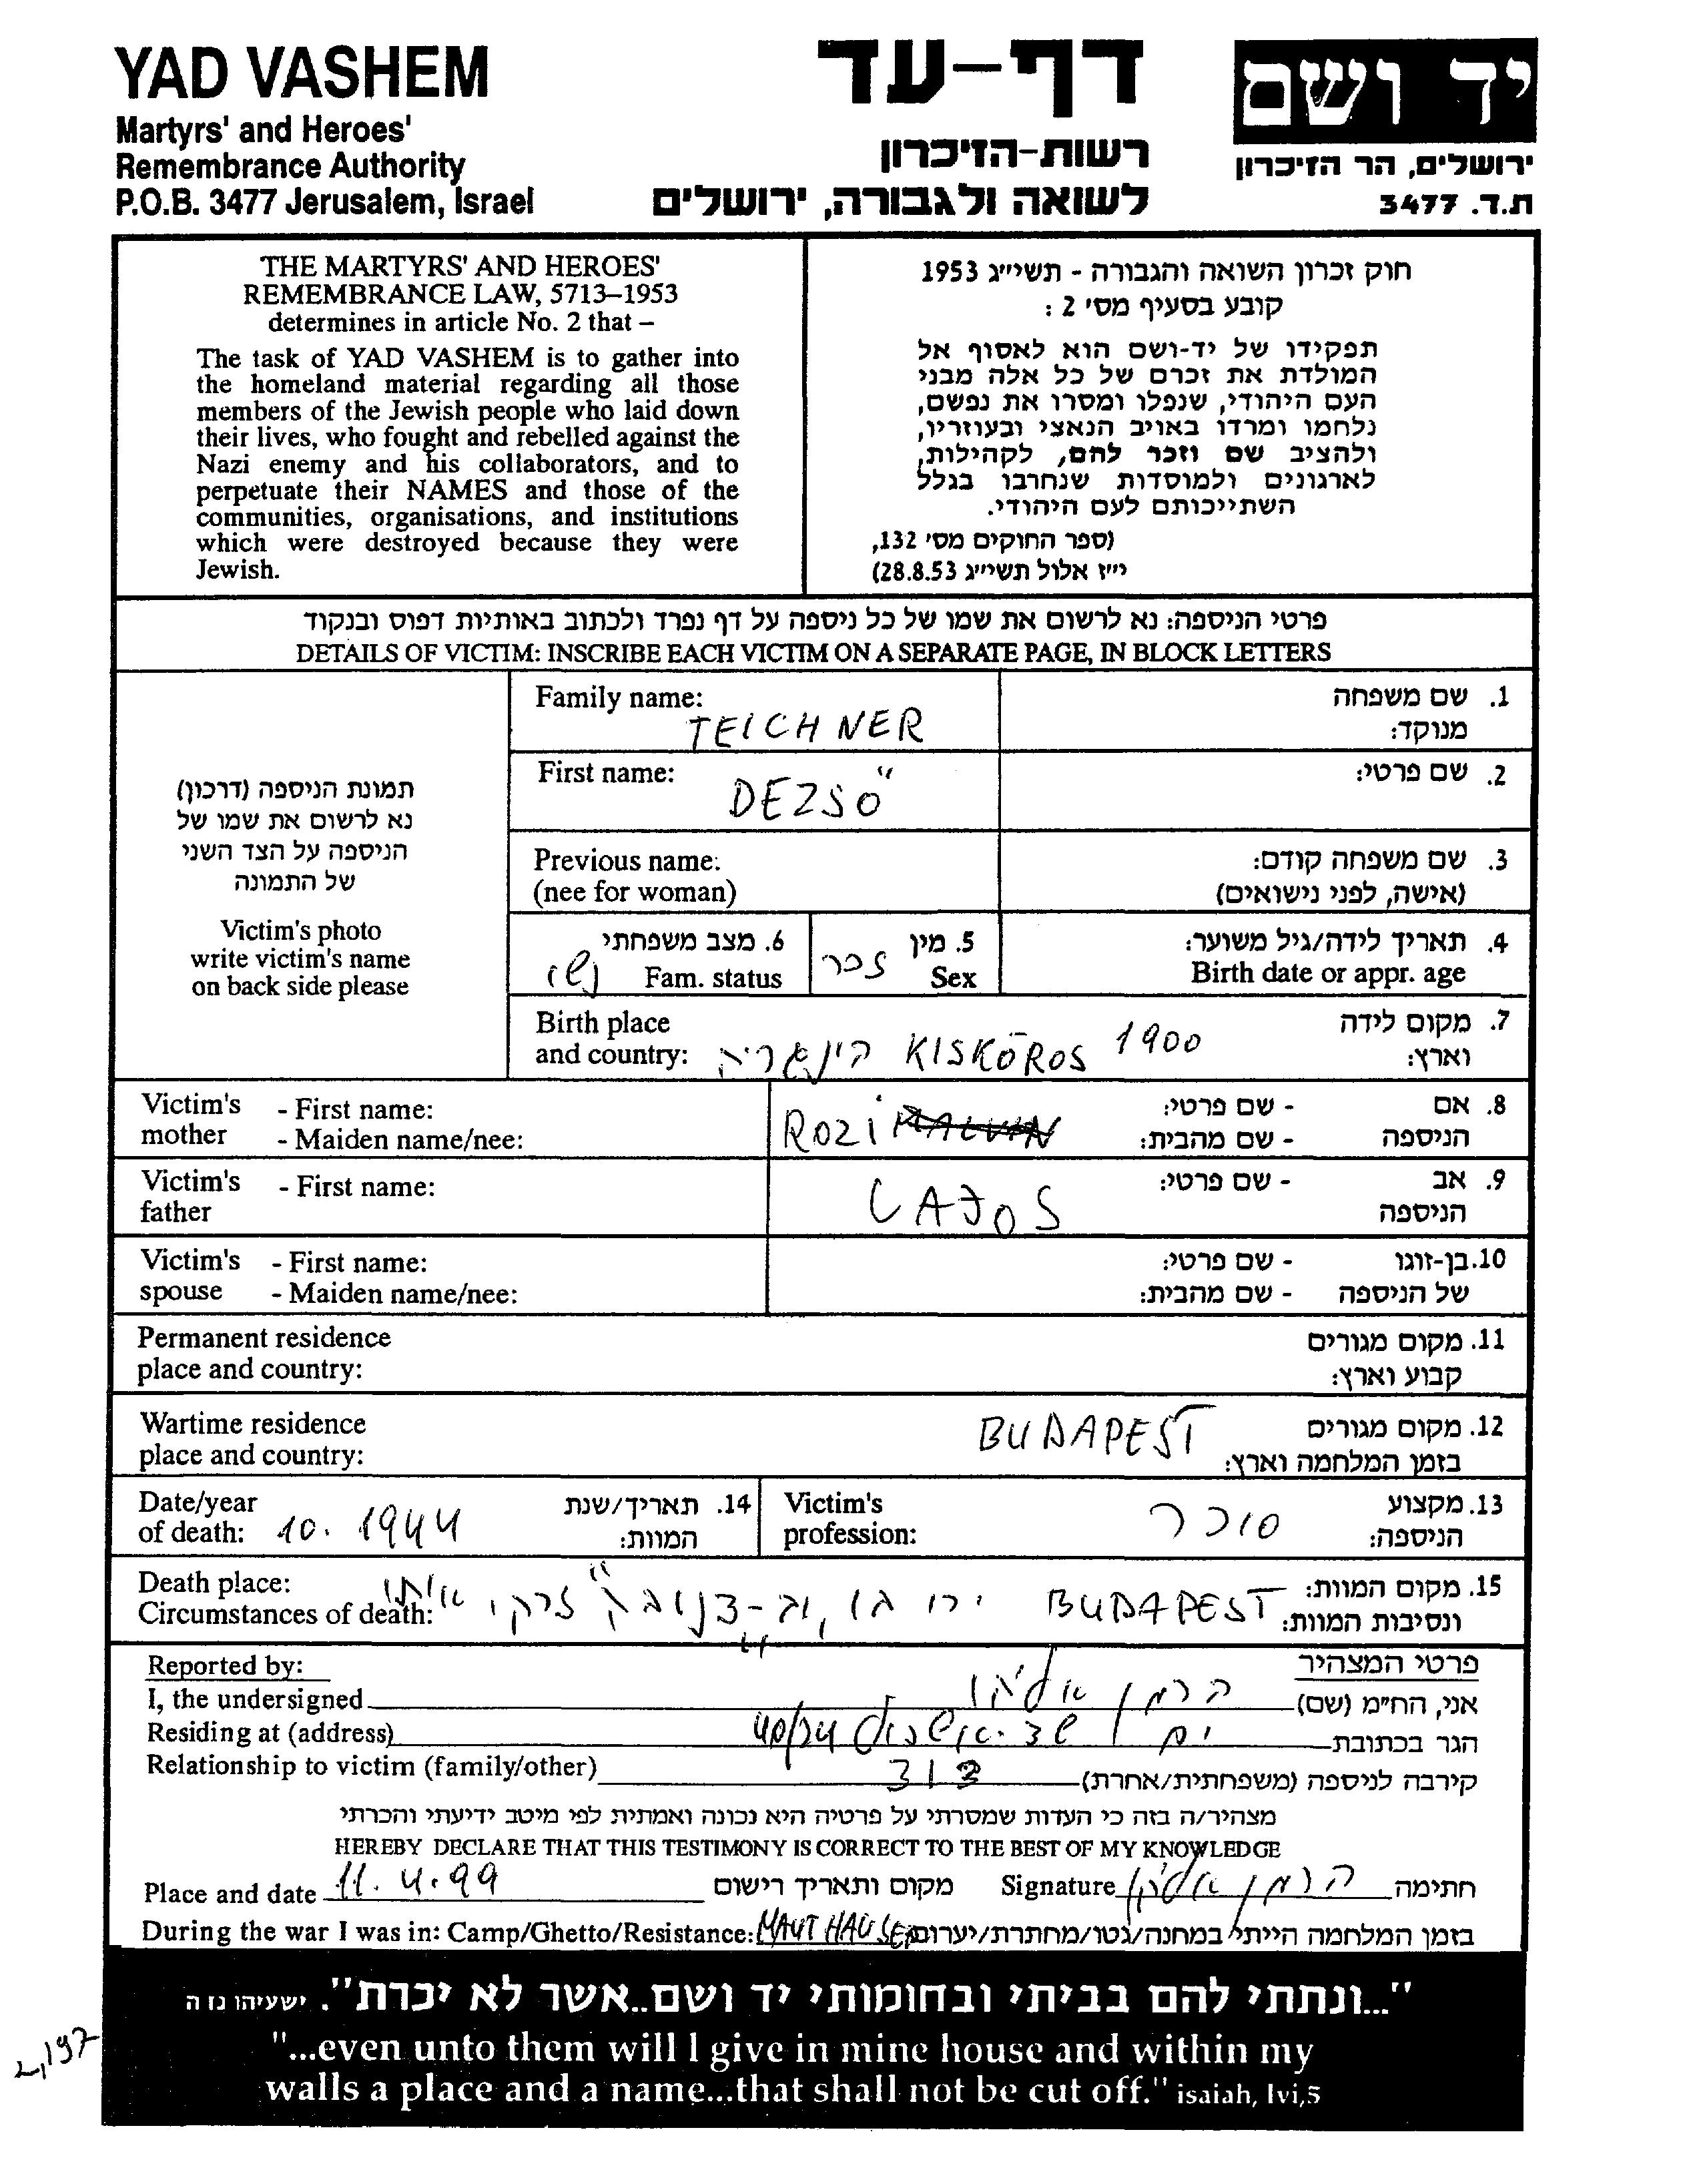 YAD VASHEM
Martyrs' and Heroes'
Remembrance Authority
P.O.B. 3477 Jerusalem, Israel
דף-עד
רשות-הזיכרון
לשואה ולגבורה, ירושלים
יד ושם
ירושלים, הר הזיכרון
ת.ד. 3477
THE MARTYRS' AND HEROES'
REMEMBRANCE LAW, 5713–1953
determines in article No. 2 that –
The task of YAD VASHEM is to gather into
the homeland material regarding all those
members of the Jewish people who laid down
their lives, who fought and rebelled against the
Nazi enemy and his collaborators, and to
perpetuate their NAMES and those of the
communities, organisations, and institutions
which were destroyed because they were
Jewish.
חוק זכרון השואה והגבורה - תשי״ג 1953
קובע בסעיף מס׳ 2 :
תפקידו של יד-ושם הוא לאסוף אל
המולדת את זכרם של כל אלה מבני
העם היהודי, שנפלו ומסרו את נפשם,
נלחמו ומרדו באויב הנאצי ובעוזריו,
ולהציב שם וזכר להם, לקהילות,
לארגונים ולמוסדות שנחרבו בגלל
השתייכותם לעם היהודי.
(ספר החוקים מס׳ 132,
י״ז אלול תשי״ג 28.8.53)
פרטי הניספה: נא לרשום את שמו של כל ניספה על דף נפרד ולכתוב באותיות דפוס ובנקוד
DETAILS OF VICTIM: INSCRIBE EACH VICTIM ON A SEPARATE PAGE, IN BLOCK LETTERS
תמונת הניספה (דרכון)
נא לרשום את שמו של
הניספה על הצד השני
של התמונה
Victim's photo
write victim's name
on back side please
Family name: 1. שם משפחה
TEICHNER מנוקד:
First name: 2. שם פרטי:
DEZSŐ
Previous name: 3. שם משפחה קודם:
(nee for woman) (אישה, לפני נישואים)
6. מצב משפחתי 5. מין 4. תאריך לידה/גיל משוער:
נשוי Fam. status זכר Sex Birth date or appr. age
Birth place 7. מקום לידה
and country: הינגריה KISKŐROS 1900 וארץ:
Victim's - First name: - שם פרטי: 8. אם
mother - Maiden name/nee: ROZI MALVIN - שם מהבית: הניספה
Victim's - First name: - שם פרטי: 9. אב
father LAJOS הניספה
Victim's - First name: - שם פרטי: 10. בן-זוגו
spouse - Maiden name/nee: - שם מהבית: של הניספה
Permanent residence 11. מקום מגורים
place and country: קבוע וארץ:
Wartime residence BUDAPEST 12. מקום מגורים
place and country: בזמן המלחמה וארץ:
Date/year 14. תאריך/שנת Victim's 13. מקצוע
of death: 10. 1944 המוות: profession: סוכר הניספה:
Death place: 15. מקום המוות:
Circumstances of death: BUDAPEST ירו בו זרקו אותו ונסיבות המוות:
Reported by: פרטי המצהיר
I, the undersigned הרמן אליהו אני, הח״מ (שם)
Residing at (address) הגר בכתובת
Relationship to victim (family/other) קירבה לניספה (משפחתית/אחרת)
מצהיר/ה בזה כי העדות שמסרתי על פרטיה היא נכונה ואמתית לפי מיטב ידיעתי והכרתי
HEREBY DECLARE THAT THIS TESTIMONY IS CORRECT TO THE BEST OF MY KNOWLEDGE
Place and date 11.4.99 מקום ותאריך רישום Signature הרמן אליהו חתימה
During the war I was in: Camp/Ghetto/Resistance: MAUTHAUSEN בזמן המלחמה הייתי במחנה/גטו/מחתרת/יערות
"...ונתתי להם בביתי ובחומותי יד ושם..אשר לא יכרת". ישעיהו נו ה
"...even unto them will I give in mine house and within my
walls a place and a name...that shall not be cut off." isaiah, lvi,5